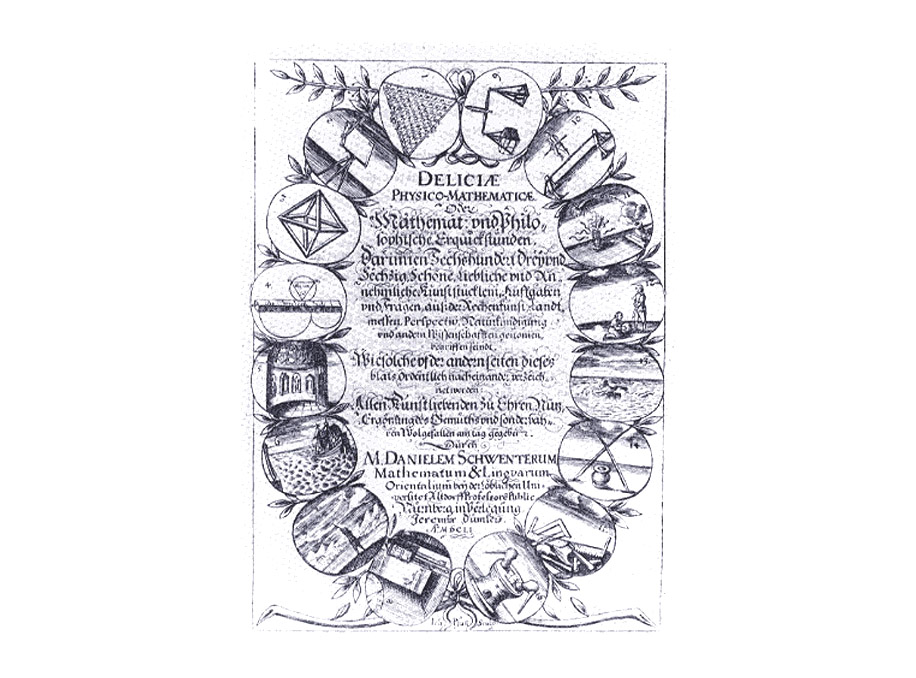 DELICIÆ
PHYSICO-MATHEMATICÆ
Oder
Mathemat: vnd Philo-
sophische Erquickstunden,
Darinnen Sechshundert Drey vnd
Sechzig, Schöne, Liebliche vnd An-
nehmliche Kunststücklein, Auffgaben
vnd Fragen, auß der Rechenkunst, Landt
messen, Perspectiv, Naturkündigung
vnd andern Wissenschafften genomen,
begriffen seindt
Wie solche vf der andern seiten dieses
blats ordentlich nacheinander verzeich
net worden:
Allen Kunstliebenden zu Ehren, Nutz,
Ergötzung des Gemüths vnd sonderbah-
ren Wolgefallen am tag gegeben.
Durch
M. DANIELEM SCHWENTERUM
Mathematum & Linguarum
Orientalium bey der löblichen Uni-
versitet Altdorff Professorē Public
Nürnberg, in Verlegung
Jeremiæ Dümlers
MDCLI